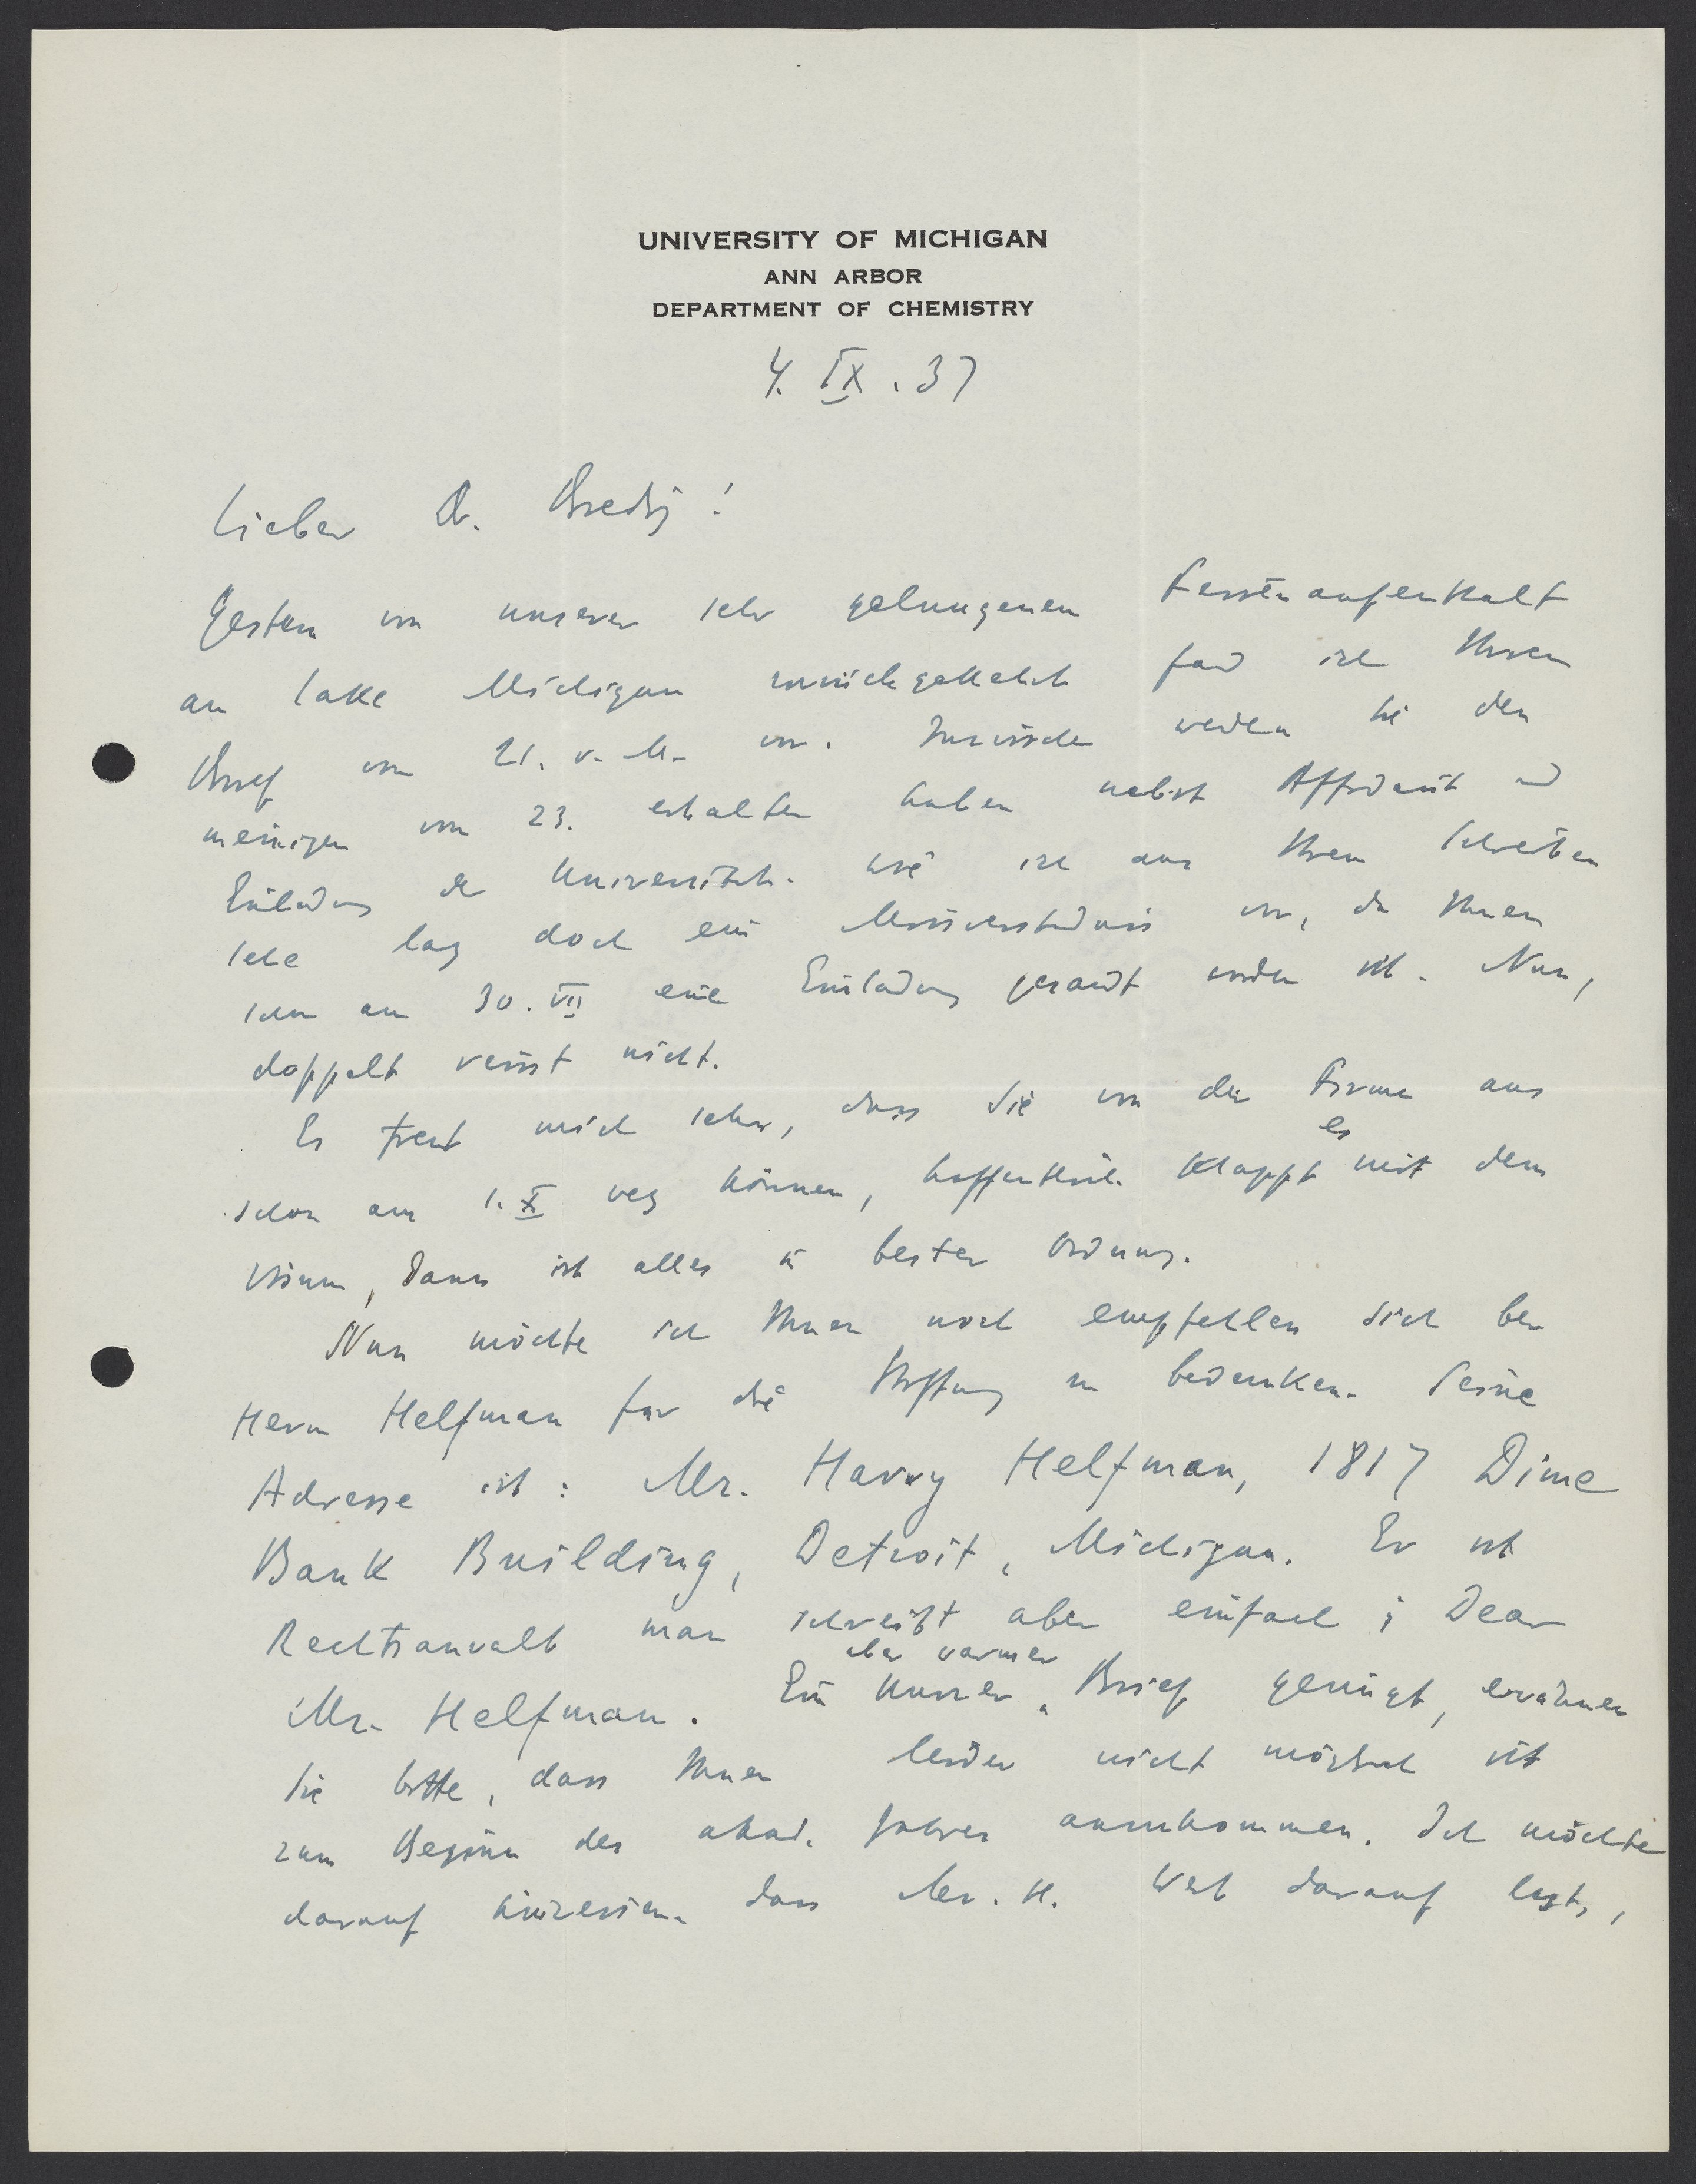 UNIVERSITY OF MICHIGAN
ANN ARBOR
DEPARTMENT OF CHEMISTRY
4. IX. 37
Lieber Dr. Bredig!
Gestern von unserer sehr gelungenen Ferienaufenthalt
am Lake Michigan zurückgekehrt fand ich Ihren
Brief vom 21. v. M. vor. Inzwischen werden Sie den
meinigen vom 23. erhalten haben nebst Affidavit und
Einladung der Universität. Wie ich aus Ihrem Schreiben
sehe lag doch ein Missverständnis vor, da Ihnen
schon am 30. VII eine Einladung gesandt worden ist. Nun,
doppelt reisst nicht.
Es freut mich sehr, dass Sie von der Firma aus
schon am 1. X weg können, hoffentlich klappt es mit dem
Visum, dann ist alles in bester Ordnung.
Nun möchte ich Ihnen noch empfehlen sich bei
Herrn Helfman für die Stiftung zu bedanken. Seine
Adresse ist: Mr. Harry Helfman, 1817 Dime
Bank Building, Detroit, Michigan. Er ist
Rechtsanwalt man schreibt aber einfach ; Dear
Mr. Helfman. Ein kurzer aber warmer Brief genügt, erwähnen
Sie bitte, dass Ihnen leider nicht möglich ist
zum Beginn des akad. Jahres anzukommen. Ich möchte
darauf hinweisen dass Mr. H. Wert darauf legt,